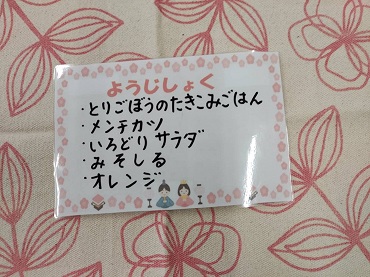 ようじしょく
・とりごぼうのたきこみごはん
・メンチカツ
・いろどりサラダ
・みそしる
・オレンジ